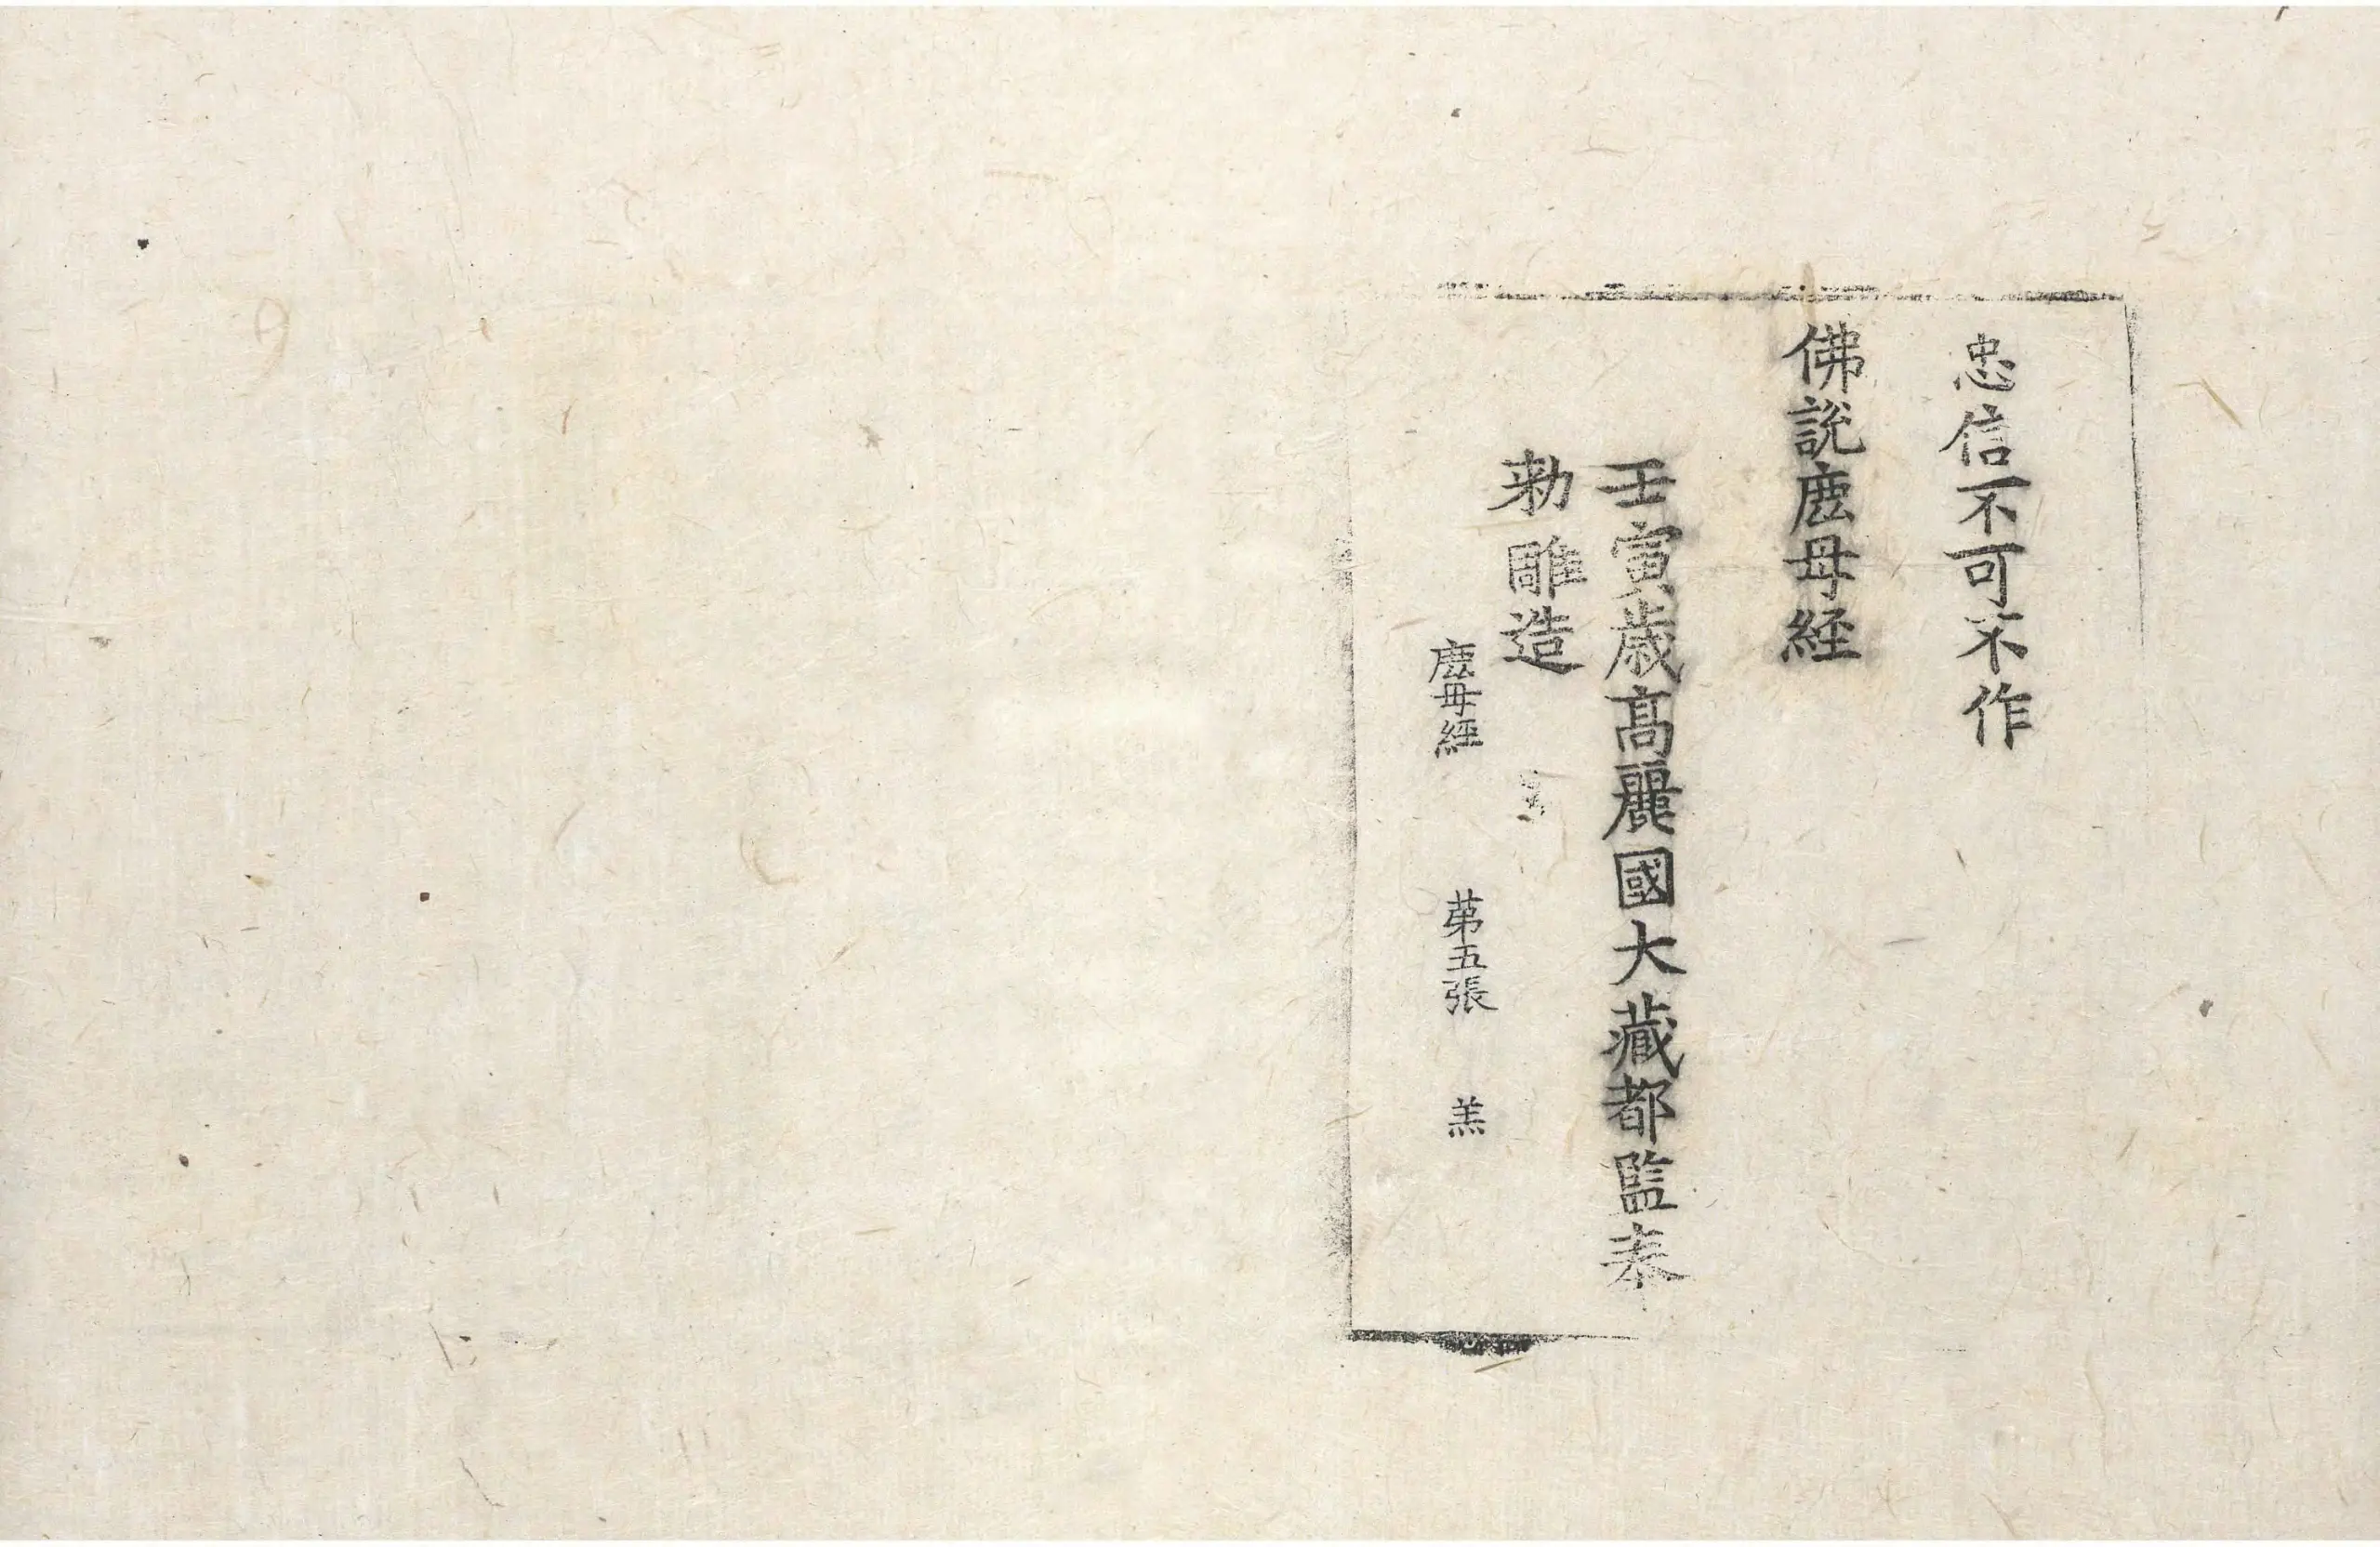 忠信不可不作
佛說鹿母經
壬寅歲高麗國大藏都監奉
勑雕造
鹿母經 第五張 羔